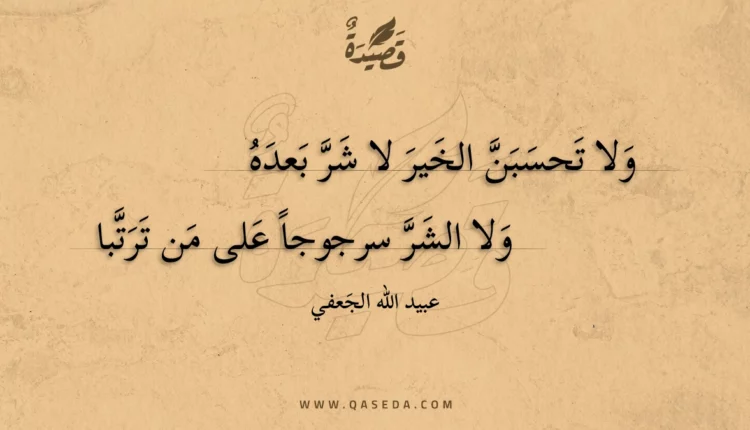 قَصِيدَةٌ
وَلا تَحسَبَنَّ الخَيرَ لا شَرَّ بَعدَهُ
وَلا الشَرَّ سرجوجاً عَلى مَن تَرَتَّبا
عبيد الله الجَعفي
WWW.QASEDA.COM